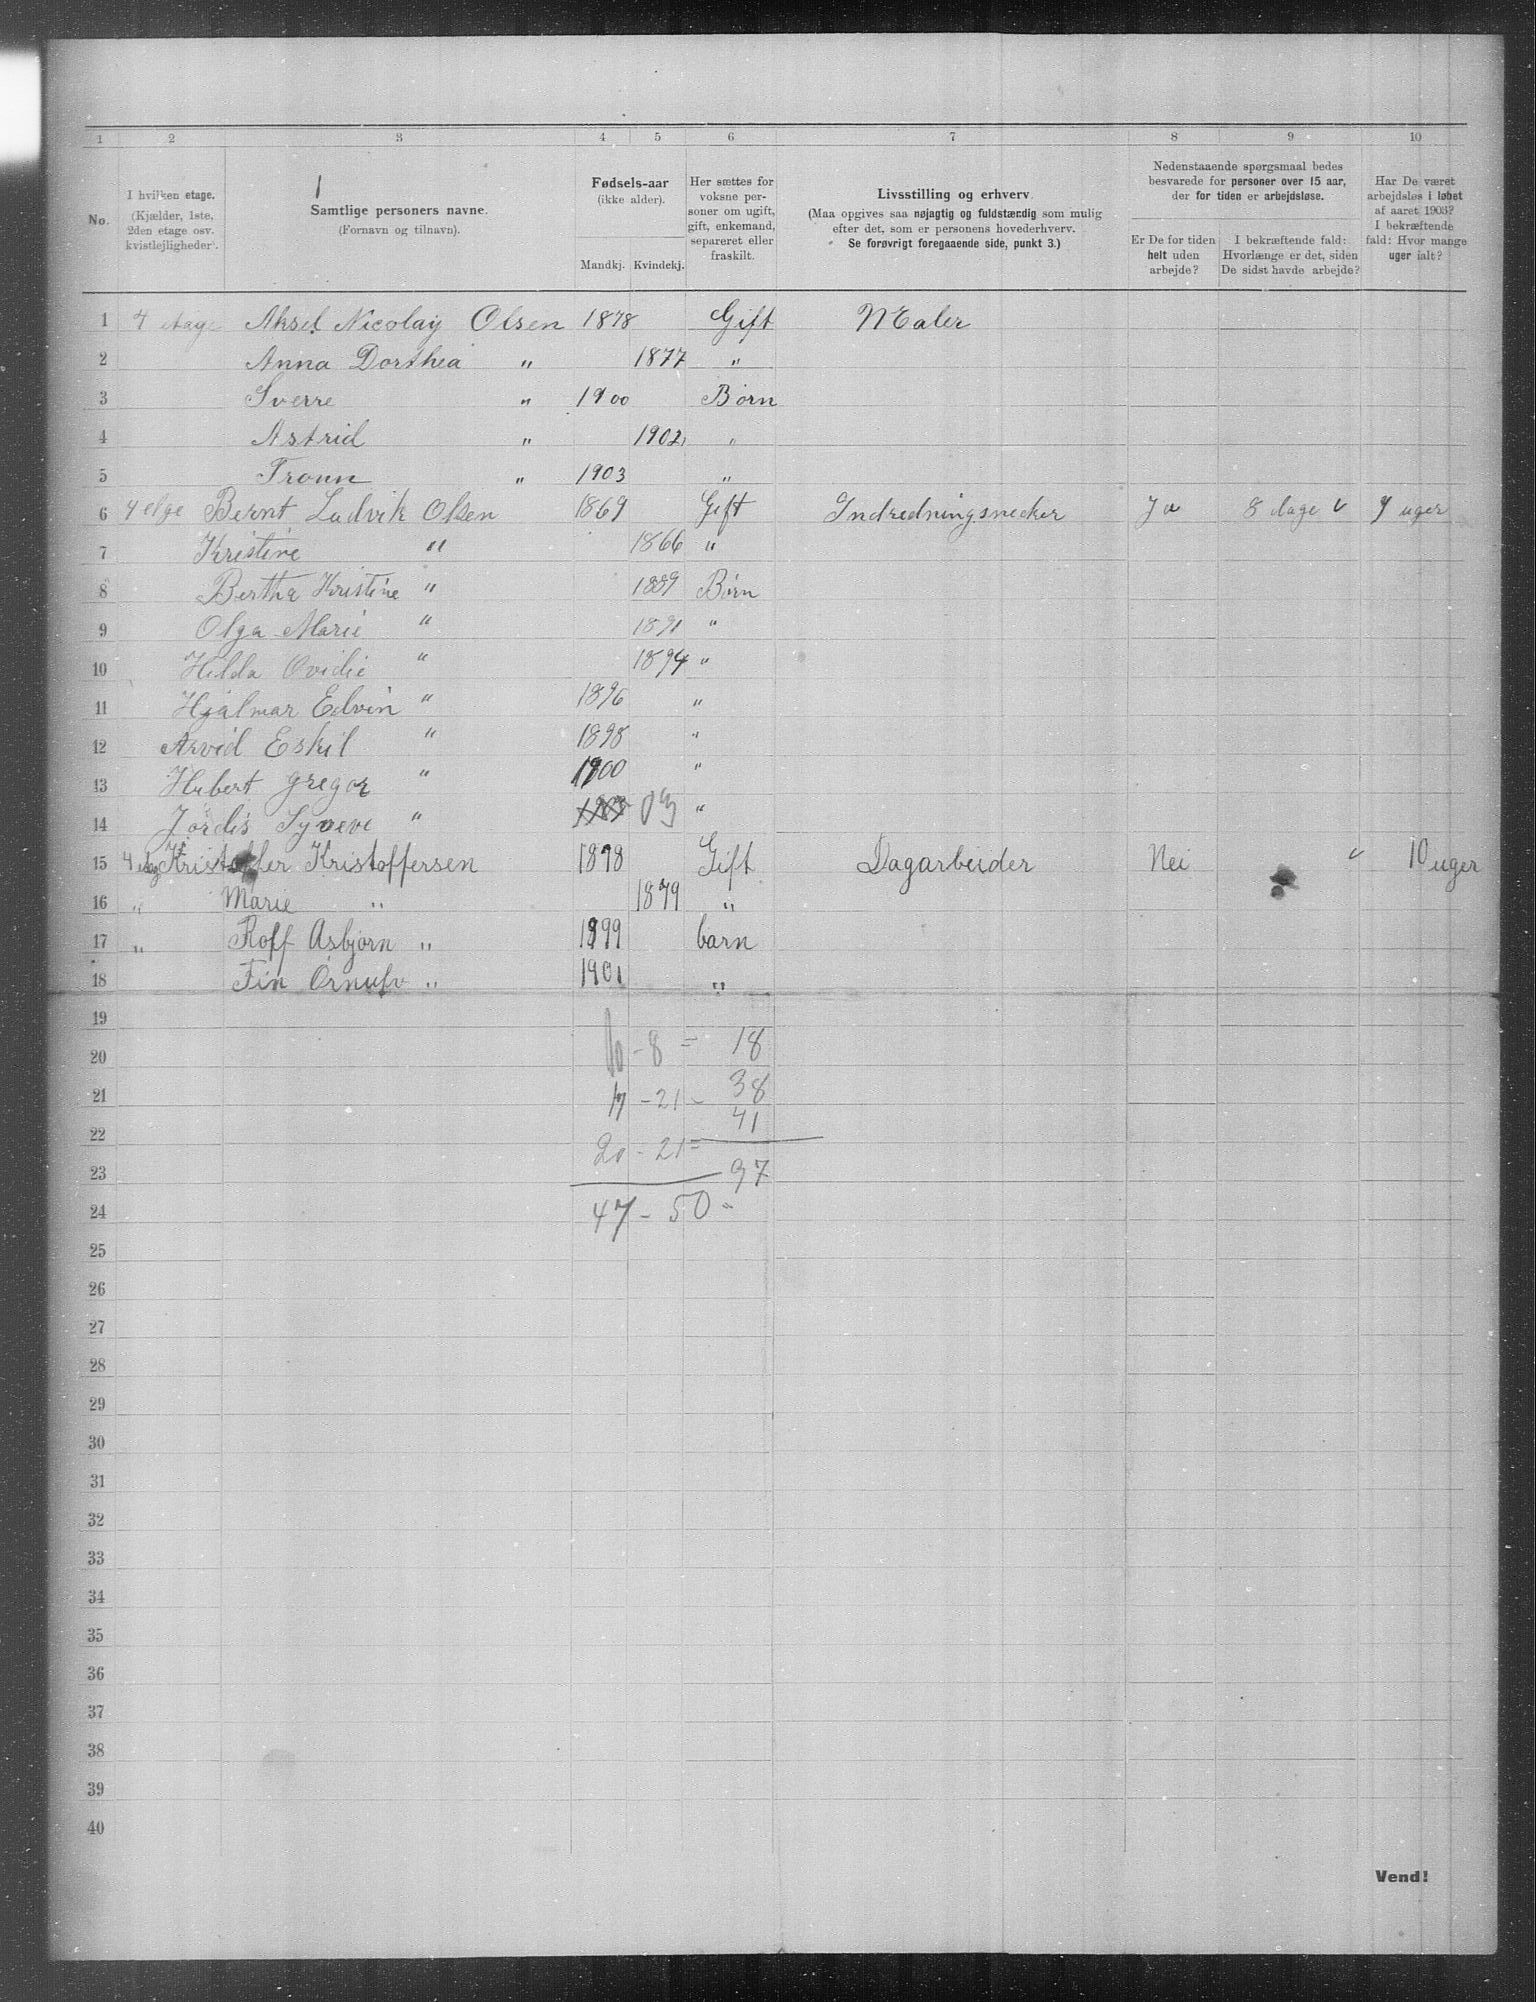 1 2 3 4 5 6 7 8 9 10
No.
I hvilken etage.
(Kjælder, 1ste,
2den etage osv.
kvistlejligheder).
Samtlige personers navne.
(Fornavn og tilnavn).
Fødsels-aar
(ikke alder).
Mandkj. Kvindekj.
Her sættes for
voksne per-
soner om ugift,
gift, enkemand,
separeret eller
fraskilt.
Livsstilling og erhverv.
(Maa opgives saa nøjagtig og fuldstændig som mulig
efter det, som er personens hovederhverv.
Se forøvrigt foregaaende side, punkt 3.)
Nedenstaaende spørgsmaal bedes
besvarede for personer over 15 aar,
der for tiden er arbejdsløse.
Er De for tiden
helt uden
arbejde?
I bekræftende fald:
Hvorlænge er det, siden
De sidst havde arbejde?
Har De været
arbejdsløs i løbet
af aaret 1903?
I bekræftende
fald: Hvor mange
uger ialt?
1 4 etage Aksel Nicolay Olsen 1878 Gift Maler
2 Anna Dorthea " 1877 "
3 Sverre " 1900 Børn
4 Astrid " 1902 "
5 " 1903 "
6 4 etge Bernt Ludvik Olsen 1869 Gift Indredningsnecker Ja 8 dage uger
7 Kristine " 1866 "
8 Bertha Kristine " 1889 Børn
9 Olga Marie " 1891 "
10 Hilda Ovidie " 1894 "
11 Hjalmar Edvin " 1896 "
12 Arvid Eskil " 1898 "
13 Hubert gregor " 1900 "
14 Jordis " 03 "
15 4 Kristoffer Kristoffersen 1878 Gift Dagarbeider Nei 10 uger
16 " Marie " 1879 "
17 " Roff Asbjørn " 1899 barn
18 Fin Ørnulv " 1901 "
19
20 10 - 8 = 18
21 17 - 21 - 38
22 41
23 20 - 21 = 97
24 47 - 50 "
25
26
27
28
29
30
31
32
33
34
35
36
37
38
39
40
Vend!